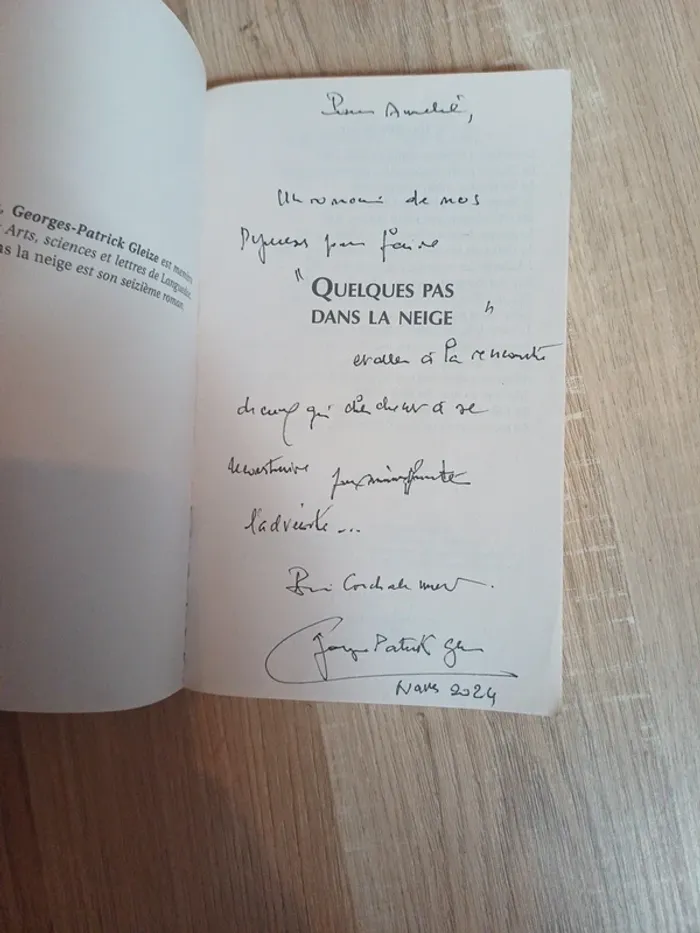 , Georges-Patrick Gleize est membre
Arts, sciences et lettres de Languedoc.
ns la neige est son seizième roman.
Pour Amélie,
Un roman de nos
Pyrénées pour faire
"QUELQUES PAS
DANS LA NEIGE"
et aller à la rencontre
de ceux qui cherchent à se
reconstruire
l'adversité...
Bien Cordialement.
Georges Patrick Gleize
Mars 2024